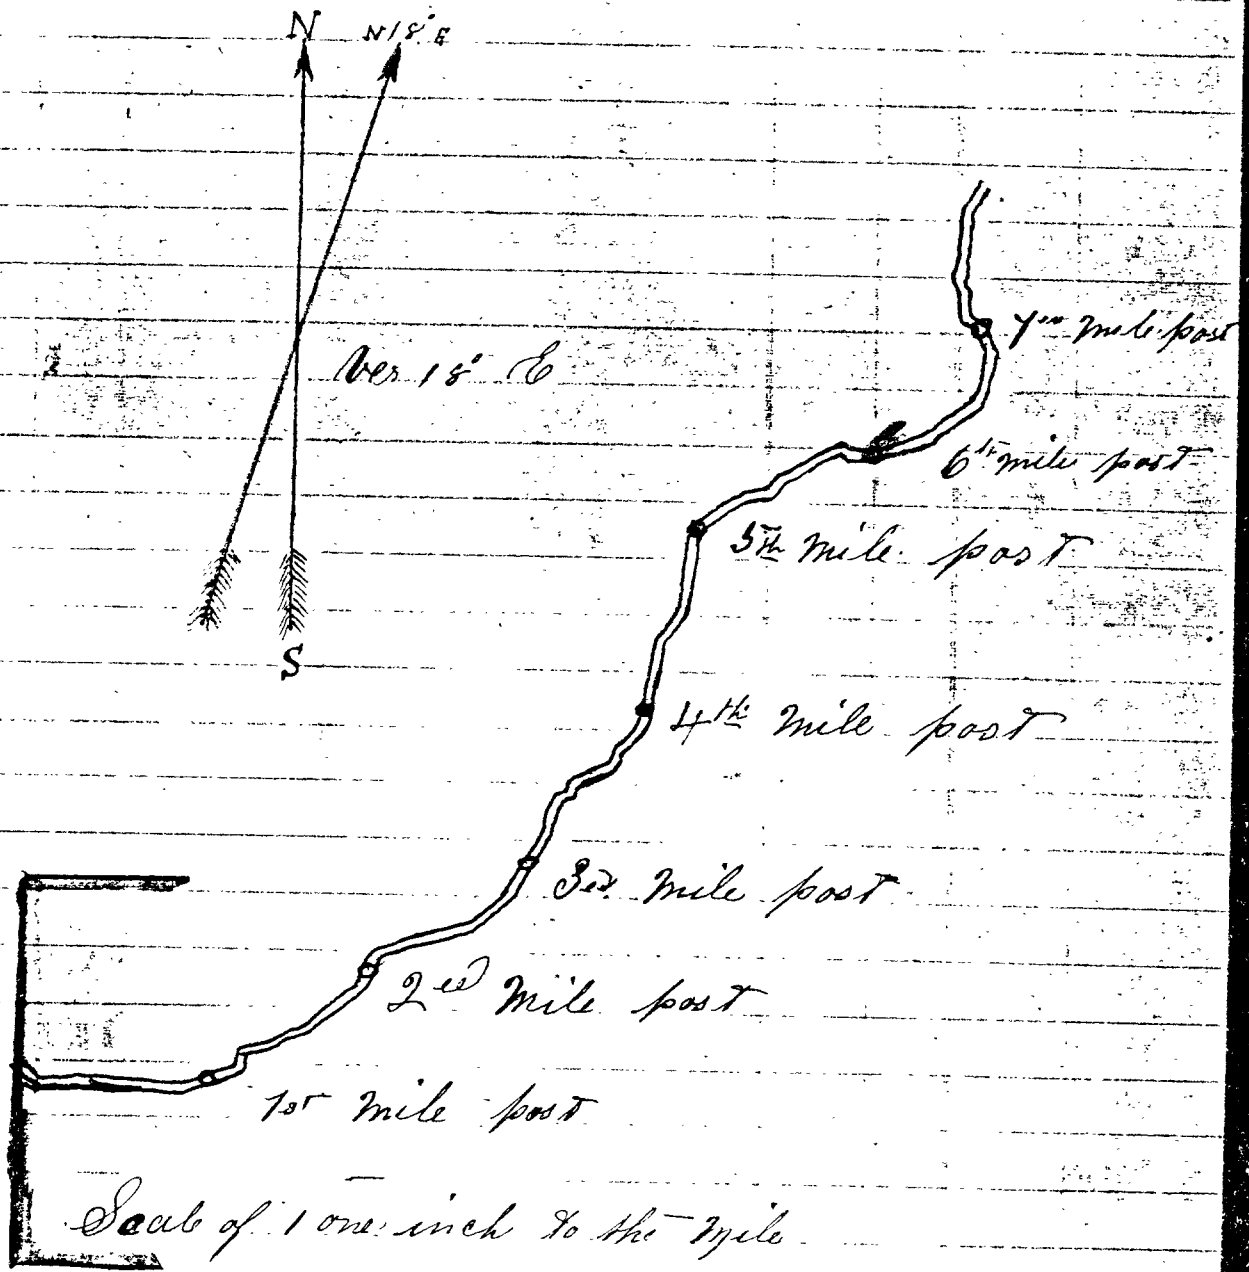 N N18°E
Ver 18° E
7th mile post
6th mile post
5th Mile post
4th Mile post
3rd Mile post
2ed Mile post
1st Mile post
S
Scale of 1 one inch to the Mile